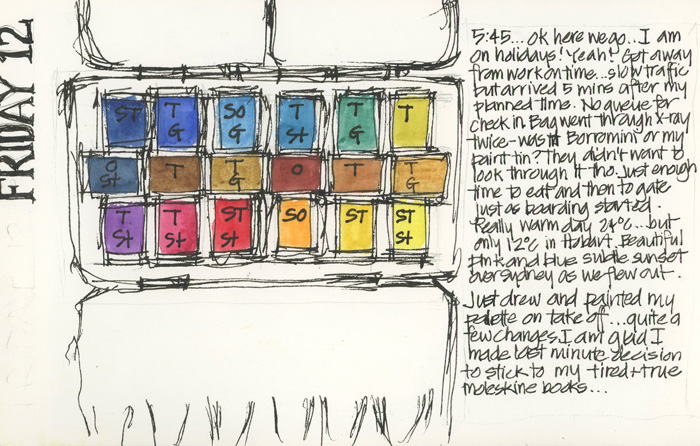 FRIDAY 12
ST
T
G
SO
G
T
St
T
G
T
O
St
T
T
G
O
T
T
G
T
St
T
St
ST
St
SO
ST
ST
St
5:45... ok here we go.. I am
on holidays! Yeah! Got away
from work on time... slow traffic
but arrived 5 mins after my
planned time. No queue for
check in. Bag went through X-ray
twice - was it Borromini or my
paint tin? They didn't want to
look through it tho. Just enough
time to eat and then to gate
just as boarding started.
Really warm day 24°C... but
only 12°C in Hobart. Beautiful
pink and blue subtle sunset
over sydney as we flew out.
Just drew and painted my
palette on take off... quite a
few changes. I am glad I
made last minute decision
to stick to my tired + true
moleskine books...